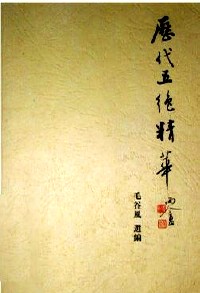 歷代五絕精華
毛谷風 選編